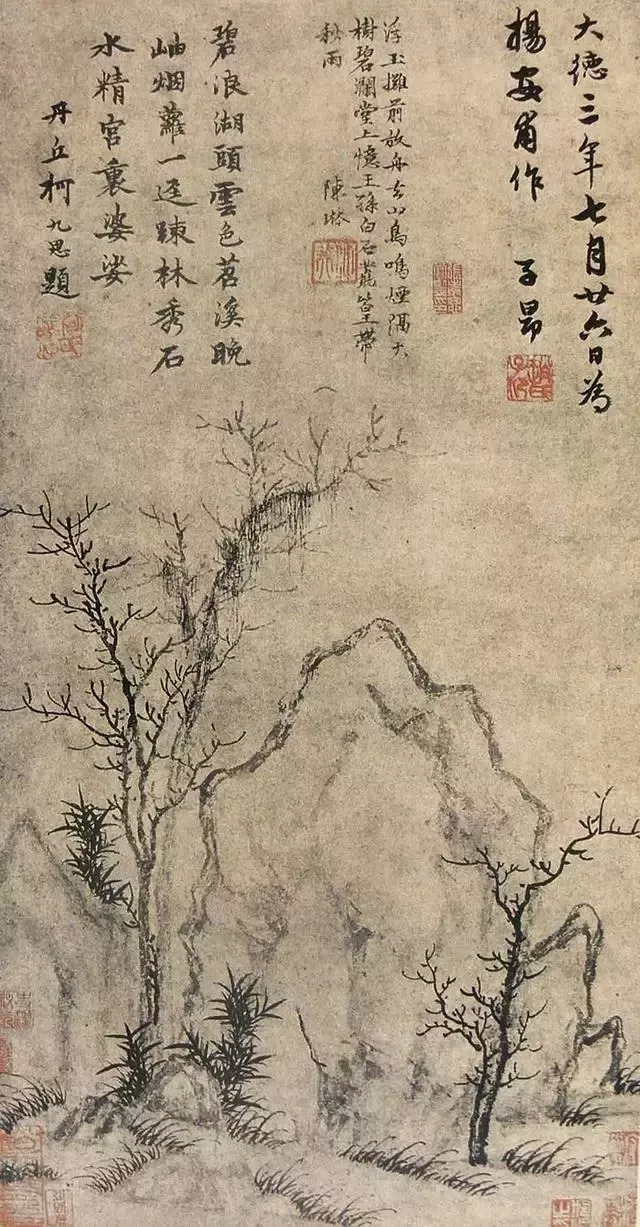 大德三年七月廿六日為
楊安甫作 子昂
趙氏子昂
浮玉攤前放舟去山鳥鳴煙隔大
樹碧瀾堂上憶王孫白石蒼筤帶
秋雨
陳琳
碧浪湖頭雲色苕溪晚
岫烟蘿一逕踈林秀石
水精宮裏婆娑
丹丘柯九思題